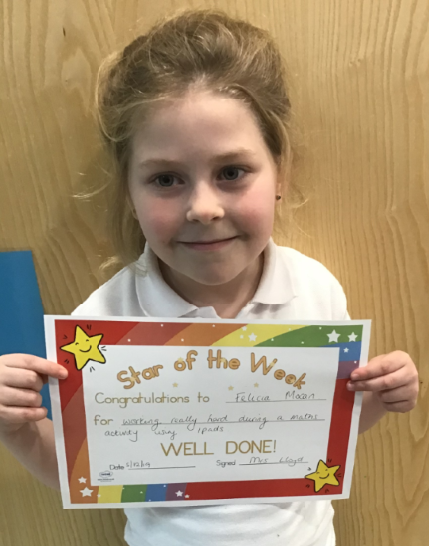 Star of the Week
Congratulations to Felicia
for working really hard during a maths
activity using ipads
WELL DONE!
Date Signed Mrs Lloyd